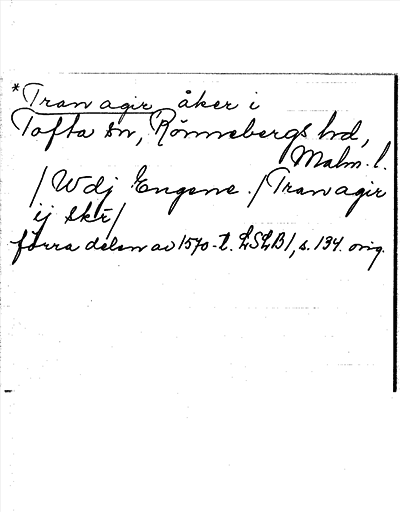 *Tranagir åker i
Tofta sn, Rönnebergs hd,
Malm. l.
/Wdj Engene./Tranagir
ij skr/
förra delen av 1570-t. LSLB1, s. 134. orig.